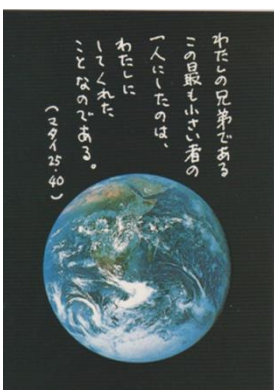 わたしの兄弟である
この最も小さい者の
一人にしたのは、
わたしに
してくれた
ことなのである。
（マタイ25・40）